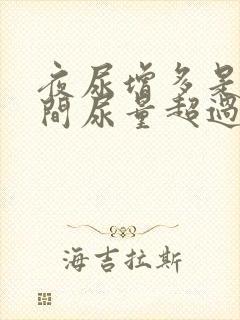 夜尿增多是
間尿量超過
海吉拉斯